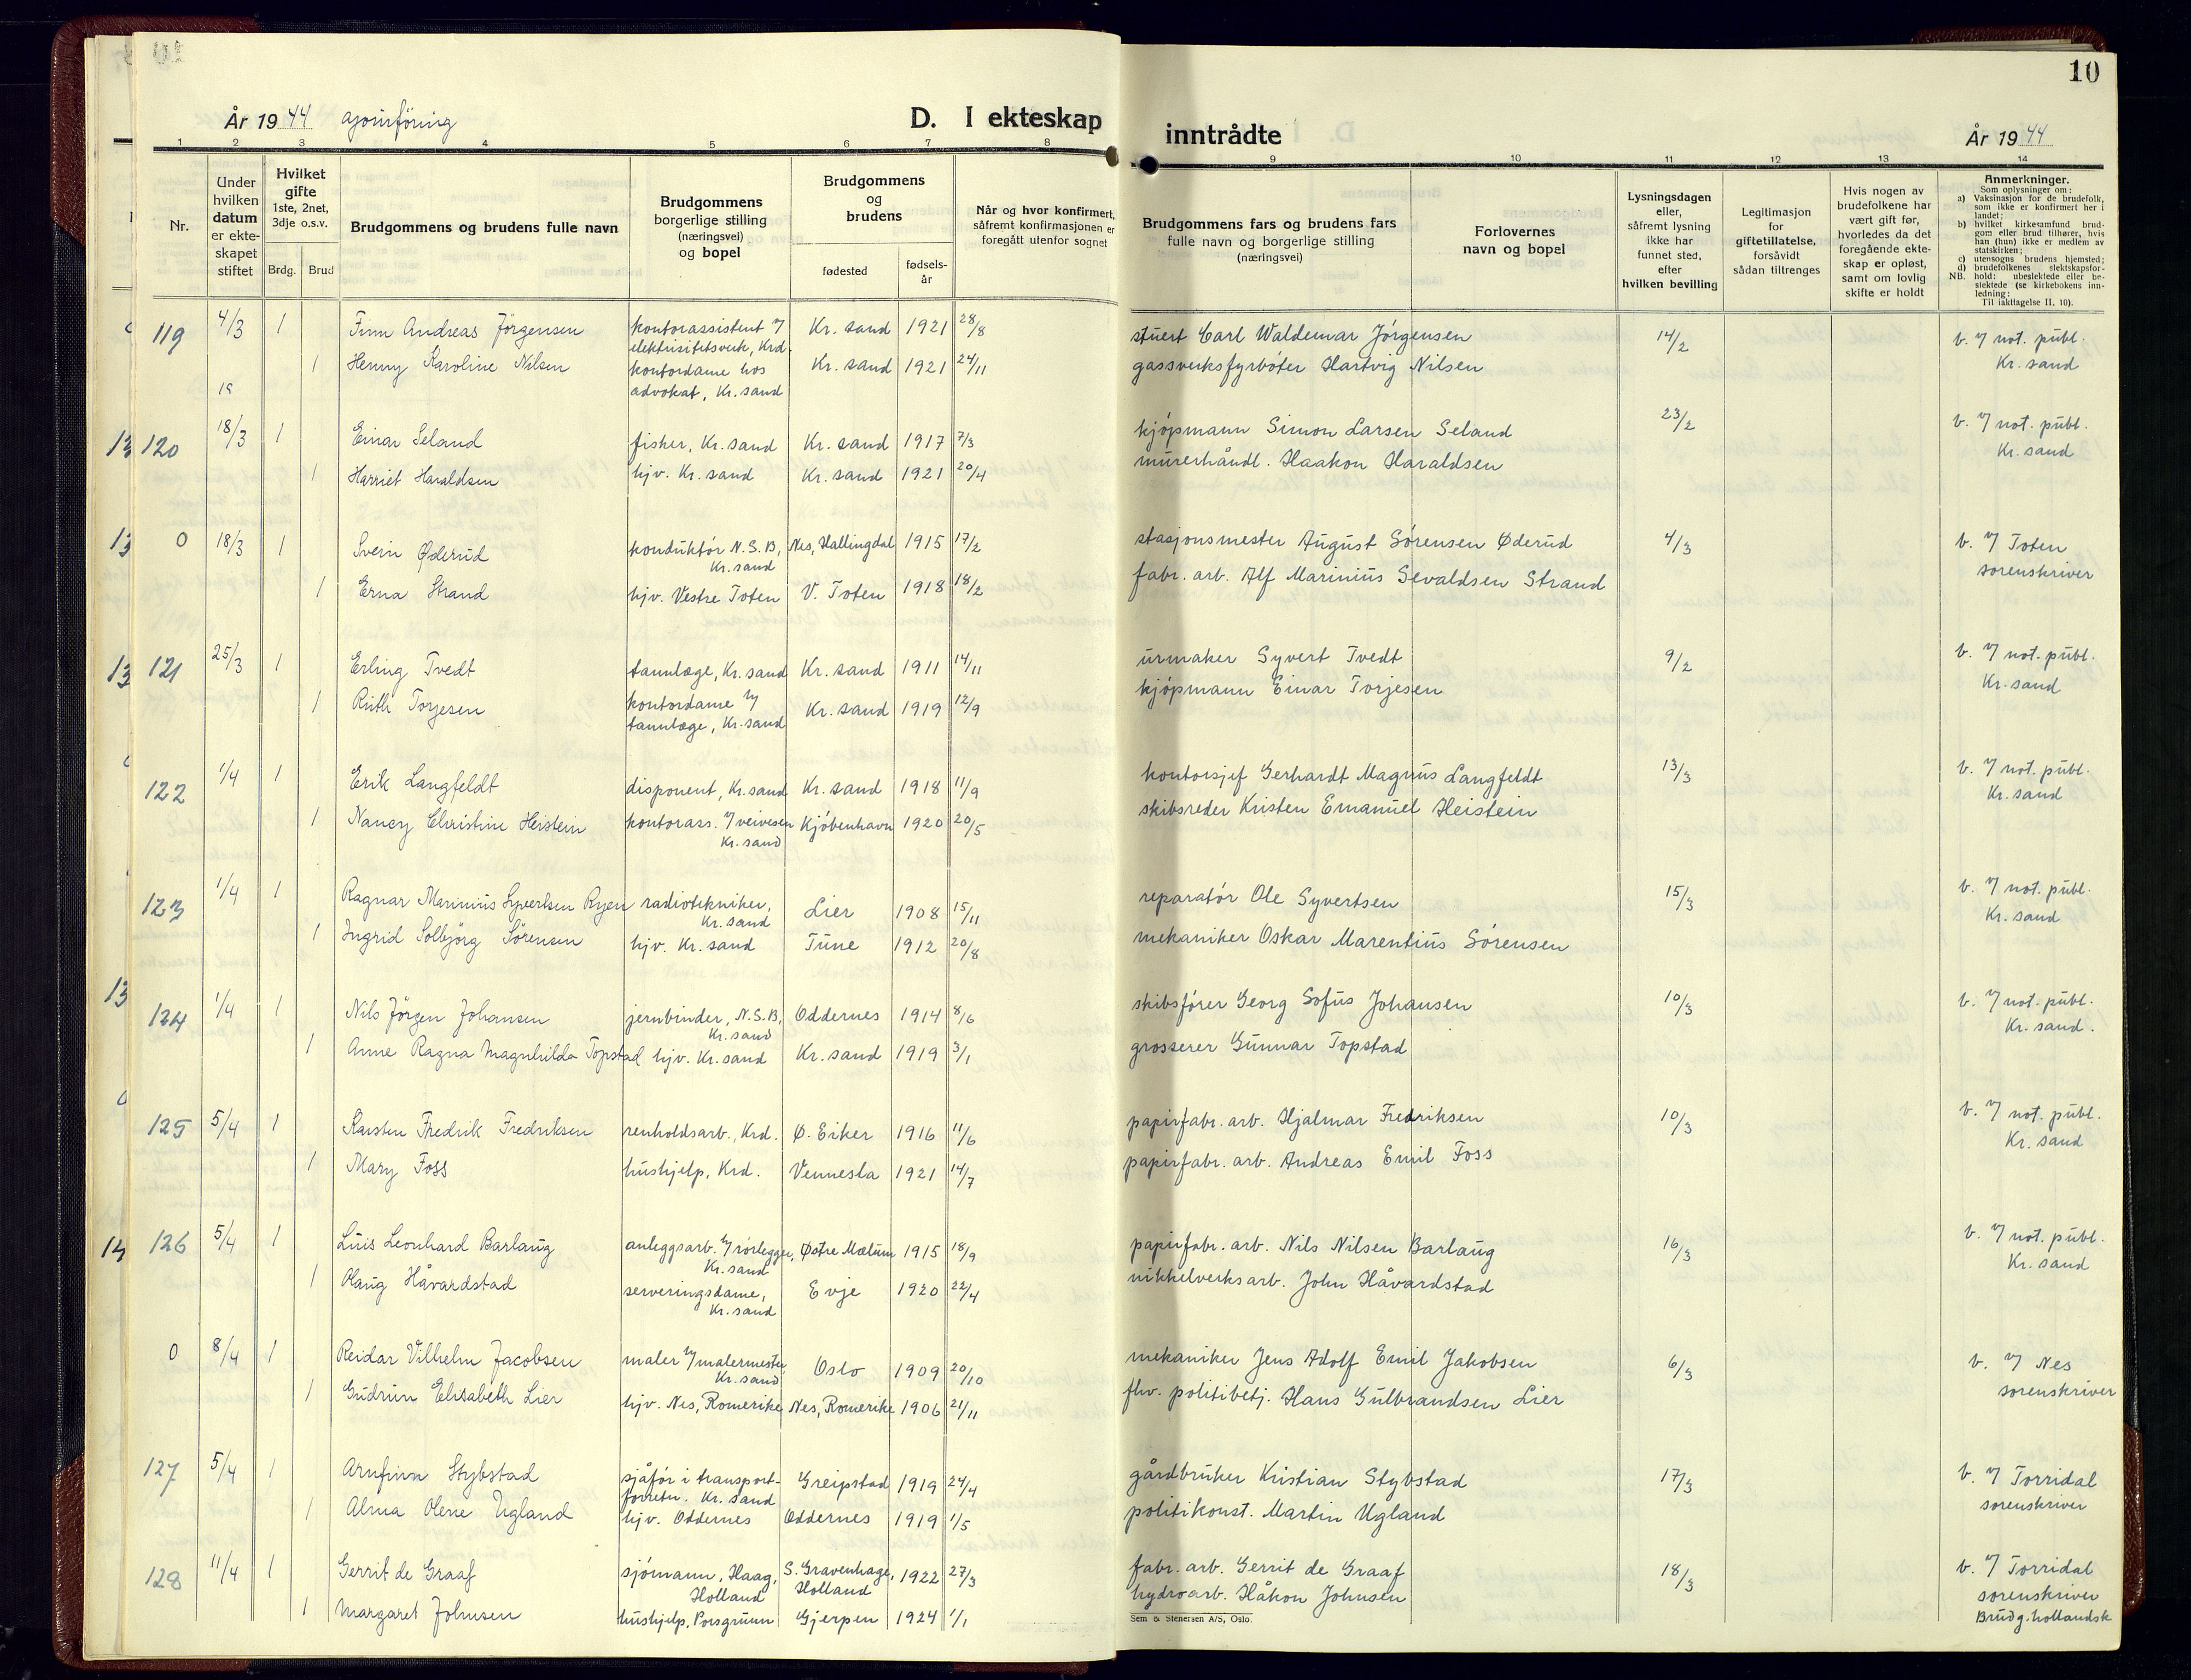 10
År 1944
D. I ekteskap inntrådte
År 1944
1 2 3 4 5 6 7 8 9 10 11 12 13 14
Nr.
Under hvilken datum er ekteskapet stiftet
Hvilket gifte 1ste, 2net, 3dje o.s.v.
Brdg. Brud
Brudgommens og brudens fulle navn
Brudgommens borgerlige stilling (næringsvei) og bopel
Brudgommens og brudens
fødested
fødselsår
Når og hvor konfirmert, såfremt konfirmasjonen er foregått utenfor sognet
Brudgommens fars og brudens fars fulle navn og borgerlige stilling (næringsvei)
Forlovernes navn og bopel
Lysningsdagen eller, såfremt lysning ikke har funnet sted, efter hvilken bevilling
Legitimasjon for giftetillatelse, forsåvidt sådan tiltrenges
Hvis nogen av brudefolkene har vært gift før, hvorledes da det foregående ekteskap er opløst, samt om lovlig skifte er holdt
Anmerkninger.
Som oplysninger om:
a) Vaksinasjon for de brudefolk, som ikke er konfirmert her i landet;
b) hvilket kirkesamfund brudgom eller brud tilhører, hvis han (hun) ikke er medlem av statskirken;
c) utensogns brudens hjemsted;
d) brudefolkenes slektskapsforhold: ubeslektede eller beslektede (se kirkebokens innledning:
NB. Til iakttagelse II, 10).
119 4/3 1 Finn Andreas Jørgensen kontorassistent v/ elektrisitetsverk, Krd. Kr. sand 1921 28/8 stuert Carl Waldemar Jørgensen 14/2 b. v/ not. publ. Kr. sand
1 Henny Karoline Nilsen kontordame hos advokat, Kr. sand Kr. sand 1921 24/11 gassverksfyrbøter Hartvig Nilsen
120 18/3 1 Einar Seland fisker, Kr. sand Kr. sand 1917 7/3 kjøpmann Simon Larsen Seland 23/2 b. v/ not. publ. Kr. sand
1 Harriet Haraldsen hjv. Kr. sand Kr. sand 1921 20/4 murerhåndl. Haakon Haraldsen
0 18/3 1 Svein Øderud konduktør N.S.B, Kr. sand Nes, Hallingdal 1915 17/2 stasjonsmester August Sørensen Øderud 4/3 b. v/ Toten sorenskriver
1 Erna Strand hjv. Vestre Toten V. Toten 1918 18/2 fabr. arb. Alf Marinius Sevaldsen Strand
121 25/3 1 Erling Tvedt tannlæge, Kr. sand Kr. sand 1911 14/11 urmaker Syvert Tvedt 9/2 b. v/ not. publ. Kr. sand
1 Ruth Torjesen kontordame v/ tannlæge, Kr. sand Kr. sand 1919 12/9 kjøpmann Einar Torjesen
122 1/4 1 Erik Langfeldt disponent, Kr. sand Kr. sand 1918 11/9 kontorsjef Gerhardt Magnus Langfeldt 13/3 b. v/ not. publ. Kr. sand
1 Nancy Christine Heistein kontorass. v/ veivesen Kr. sand Kjøbenhavn 1920 20/5 skibsreder Kristen Emanuel Heistein
123 1/4 1 Ragnar Marinius Syvertsen Ryen radiotekniker, Kr. sand Lier 1908 15/11 reparatør Ole Syvertsen 15/3 b. v/ not. publ. Kr. sand
1 Ingrid Solbjørg Sørensen hjv. Kr. sand Tune 1912 20/8 mekaniker Oskar Marentius Sørensen
124 1/4 1 Nils Jørgen Johansen jernbinder, N.S.B, Kr. sand Oddernes 1914 8/6 skibsfører Georg Sofus Johansen 10/3 b. v/ not. publ. Kr. sand.
1 Anne Ragna Magnhilda Topstad hjv. Kr. sand Kr. sand 1919 3/1 grosserer Gunnar Topstad
125 5/4 1 Karsten Fredrik Fredriksen renholdsarb., Krd. Ø. Eiker 1916 11/6 papirfabr. arb. Hjalmar Fredriksen 10/3 b. v/ not. publ. Kr. sand
1 Mary Foss hushjelp, Krd. Vennesla 1921 14/7 papirfabr. arb. Andreas Emil Foss
126 5/4 1 Luis Leonhard Barlaug anleggsarb. v/ rørlegger, Kr. sand Østre Mælum 1915 18/9 papirfabr. arb. Nils Nilsen Barlaug 16/3 b. v/ not. publ. Kr. sand
1 Olaug Håvardstad serveringsdame, Kr. sand Evje 1920 22/4 nikkelverksarb. John Håvardstad
0 8/4 1 Reidar Vilhelm Jacobsen maler v/ malermester Kr. sand Oslo 1909 20/10 mekaniker Jens Adolf Emil Jakobsen 6/3 b. v/ Nes sorenskriver
1 Gudrun Elisabeth Lier hjv. Nes, Romerike Nes, Romerike 1906 21/11 fhv. politibetj. Hans Gulbrandsen Lier
127 5/4 1 Arnfinn Stybstad sjåfør i transportforretn. Kr. sand Greipstad 1919 24/4 gårdbruker Kristian Stybstad 17/3 b. v/ Torridal sorenskriver
1 Alma Olene Ugland hjv. Oddernes Oddernes 1919 1/5 politikonst. Martin Ugland
128 11/4 1 Gerrit de Graaf sjømann, Haag, Holland S. Gravenhage, Holland 1922 27/3 fabr. arb. Gerrit de Graaf 18/3 b. v/ Torridal sorenskriver
1 Margaret Johnsen hushjelp, Porsgrunn Gjerpen 1924 1/1 hydroarb. Håkon Johnsen Brudg. hollandsk
Sem & Stenersen A/S, Oslo.